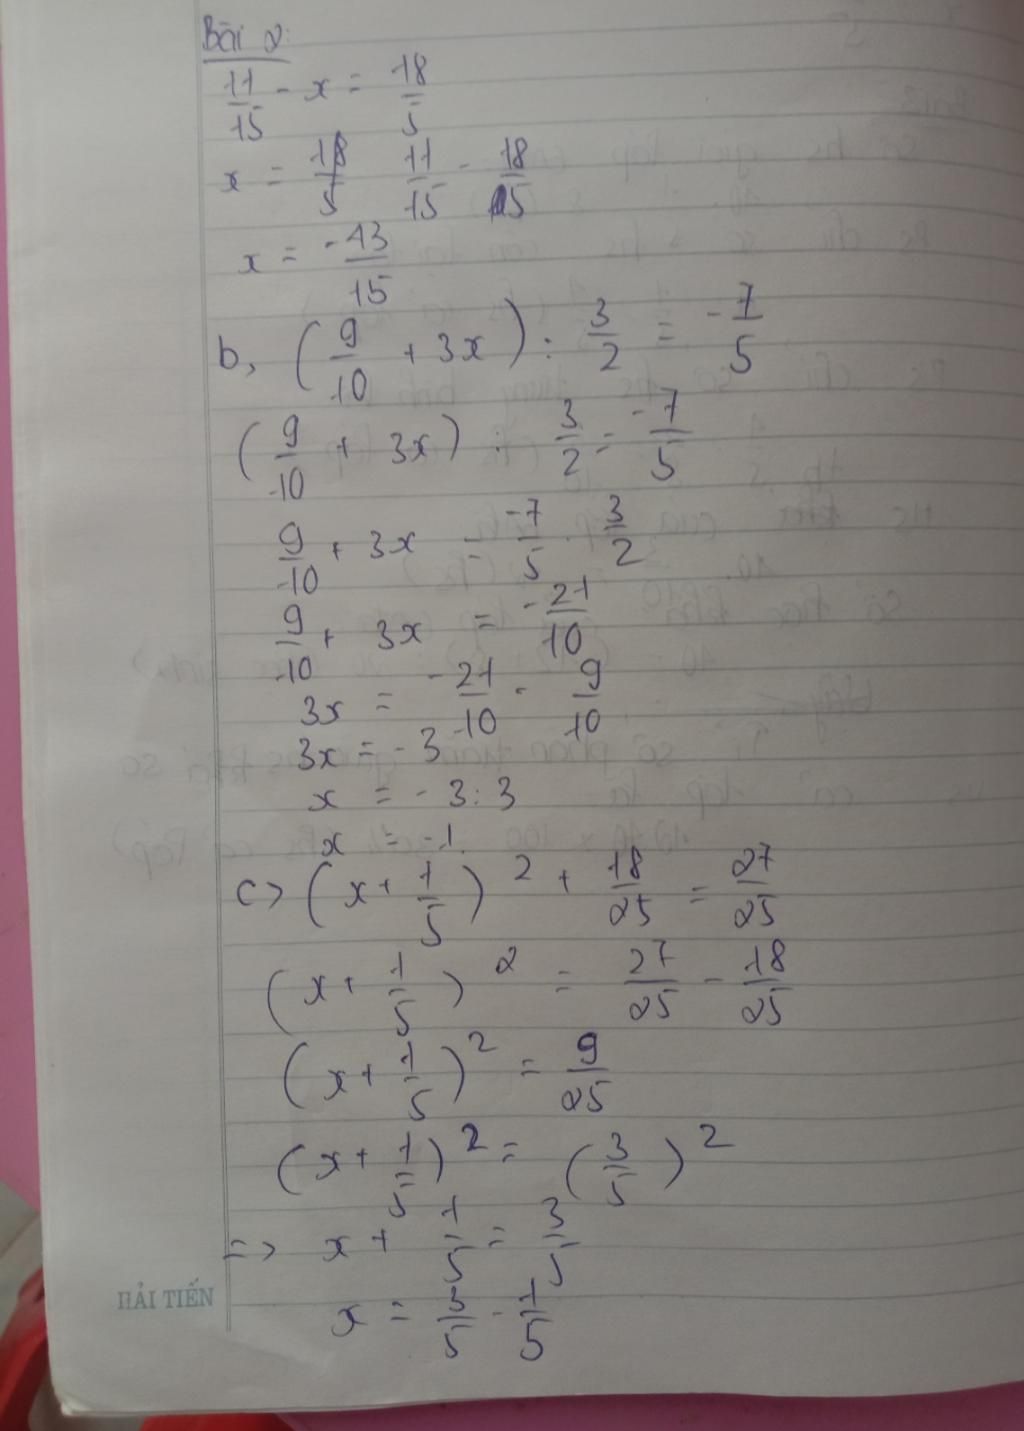 Bài 2:
11/15 - x = 18/5
x = 18/5 11/15 - 18/15
x = -43/15
b, (9/10 + 3x) : 3/2 = -7/5
(9/10 + 3x) : 3/2 = -7/5
9/10 + 3x = -7/5 . 3/2
9/10 + 3x = -21/10
3x = -21/10 - 9/10
3x = -3
x = -3 : 3
x = -1.
c> (x + 1/5)² + 18/25 = 27/25
(x + 1/5)² = 27/25 - 18/25
(x + 1/5)² = 9/25
(x + 1/5)² = (3/5)²
=> x + 1/5 = 3/5
x = 3/5 - 1/5
HẢI TIẾN